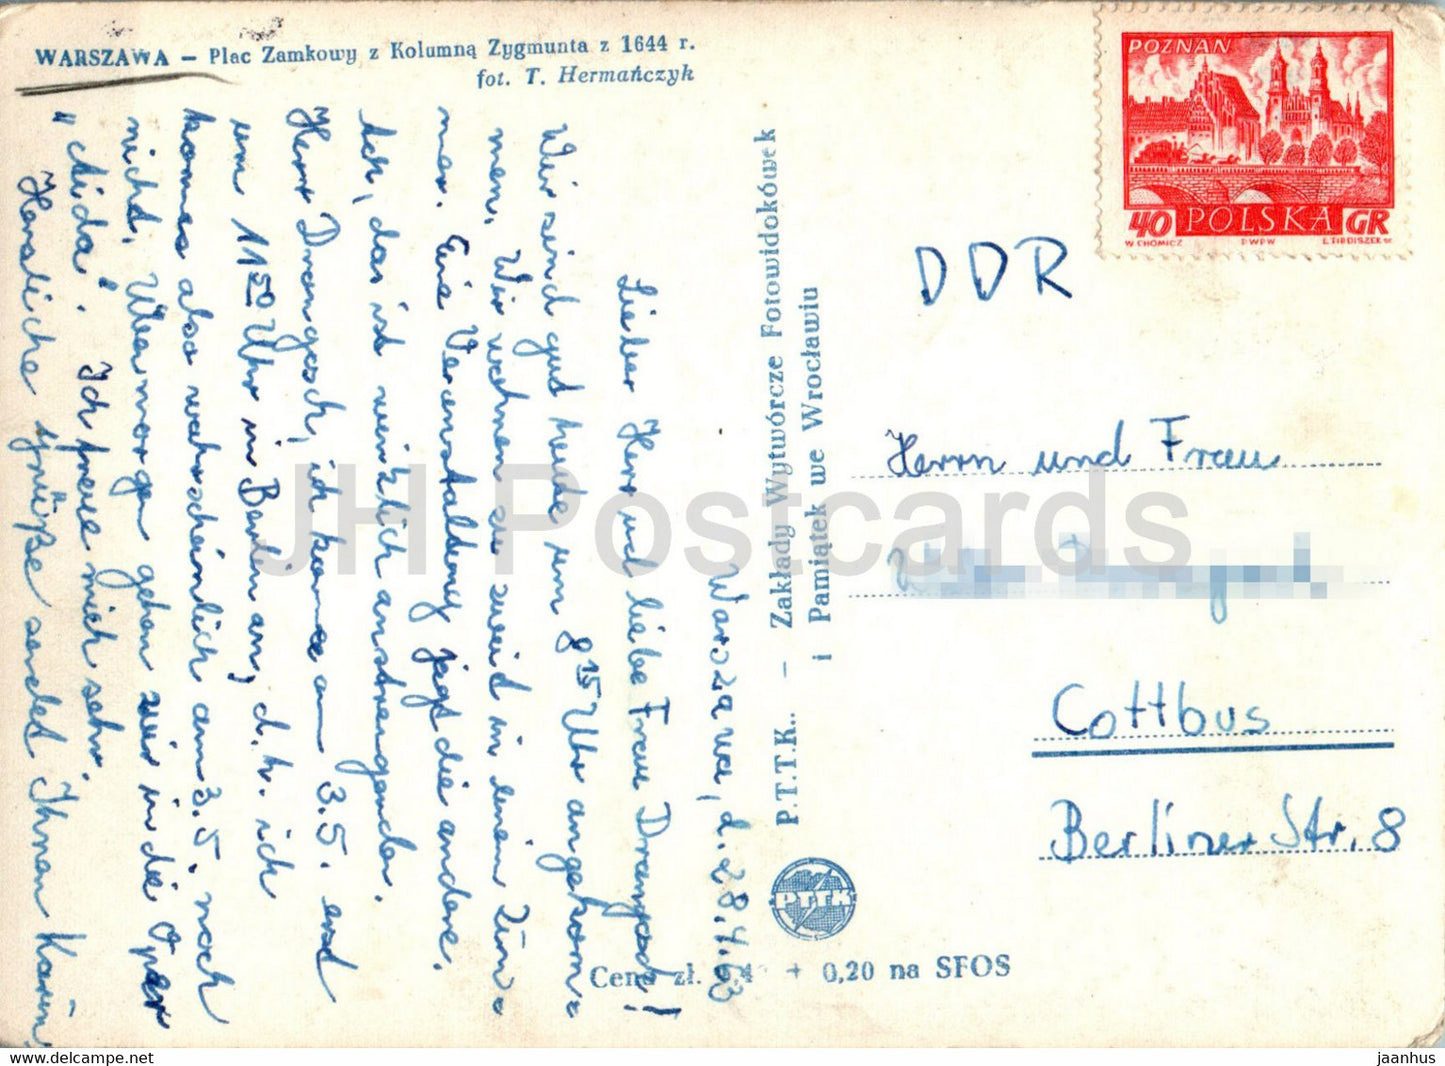 WARSZAWA – Plac Zamkowy z Kolumną Zygmunta z 1644 r.
fot. T. Hermańczyk
Warszawa, d. 28.4.63
Lieber Herr und liebe Frau Drengosch!
Wir sind gut heute um 8 15 Uhr angekom-
men. Wir wohnen zu zweid in einem Zim-
mer. Eine Veranstaldung jagt die andere.
Ach, das ist wirklich anstrengender.
Herr Drengosch, ich komme am 3.5. erst
um 11 20 Uhr in Berlin an, d.h. ich
komme also wahrscheinlich am 3.5. noch
nicht. Übermorgen gehen wir in die Oper
"Aida". Ich freue mich sehr.
Herzliche Grüße sendet Ihnen Karin
P.T.T.K. – Zakłady Wytwórcze Fotowidokówek
i Pamiątek we Wrocławiu
PTTK
Cena zł. + 0,20 na SFOS
POZNAŃ
40 POLSKA GR
W. CHOMICZ PWPW
DDR
Herrn und Frau
Cottbus
Berliner Str. 8
JH Postcards
https://jhpostcards.com/
jaanhus